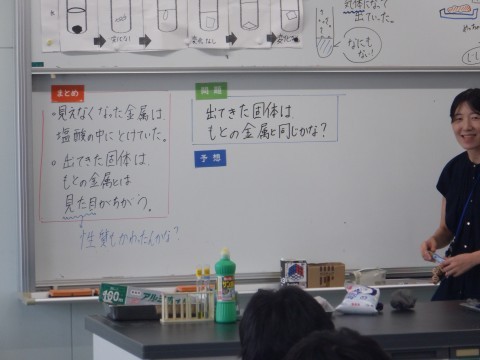 気体になって
出ていた。
なにも
ない!
まとめ
・見えなくなった金属は、
塩酸の中にとけていた。
・出てきた固体は、
もとの金属とは
見た目がちがう。
性質もかわったんかな?
問題
出てきた固体は、
もとの金属と同じかな?
予想